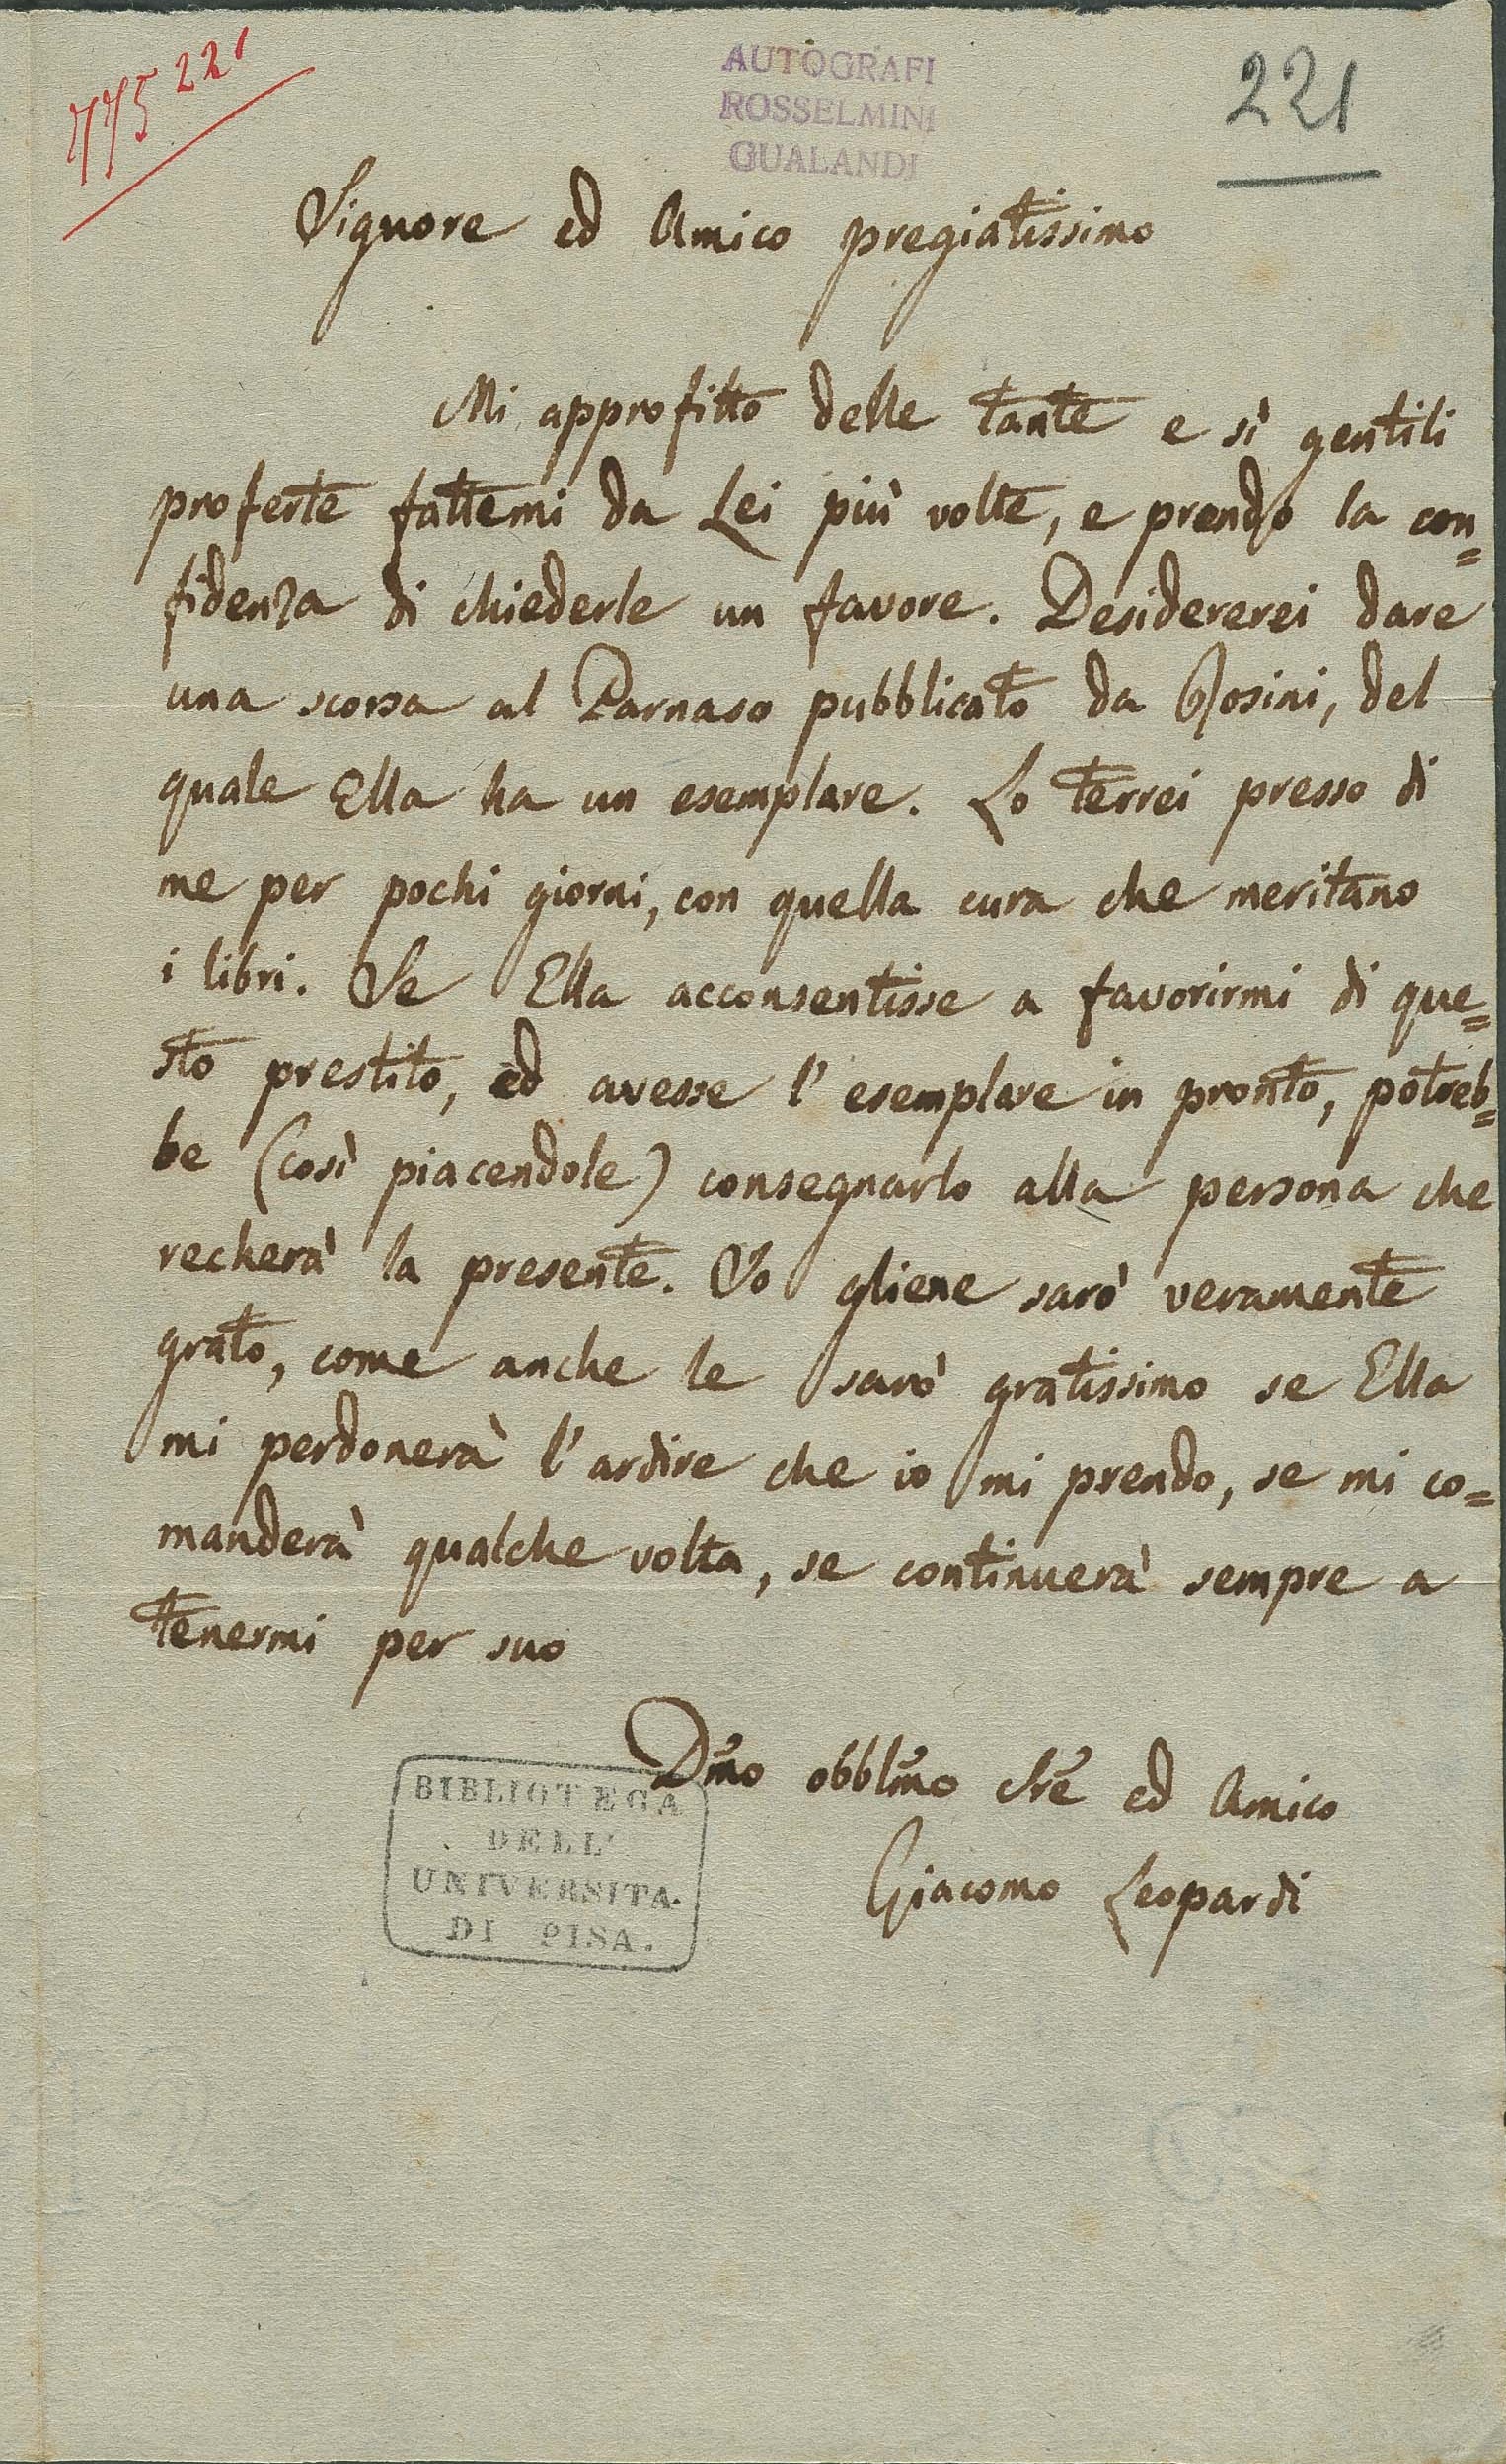 775 221
AUTOGRAFI
ROSSELMINI
GUALANDI
221
Signore ed Amico pregiatissimo
Mi approfitto delle tante e sì gentili
proferte fattemi da Lei più volte, e prendo la con=
fidenza di chiederle un favore. Desidererei dare
una scorsa al Parnaso pubblicato da Rosini, del
quale Ella ha un esemplare. Lo terrei presso di
me per pochi giorni, con quella cura che meritano
i libri. Se Ella acconsentisse a favorirmi di que=
sto prestito, ed avesse l'esemplare in pronto, potreb=
be (così piacendole) consegnarlo alla persona che
recherà la presente. Io gliene sarò veramente
grato, come anche le sarò gratissimo se Ella
mi perdonerà l'ardire che io mi prendo, se mi co=
manderà qualche volta, se continuerà sempre a
tenermi per suo
Dmo obblmo sre ed Amico
Giacomo Leopardi
BIBLIOTECA
DELL'
UNIVERSITA.
DI PISA.